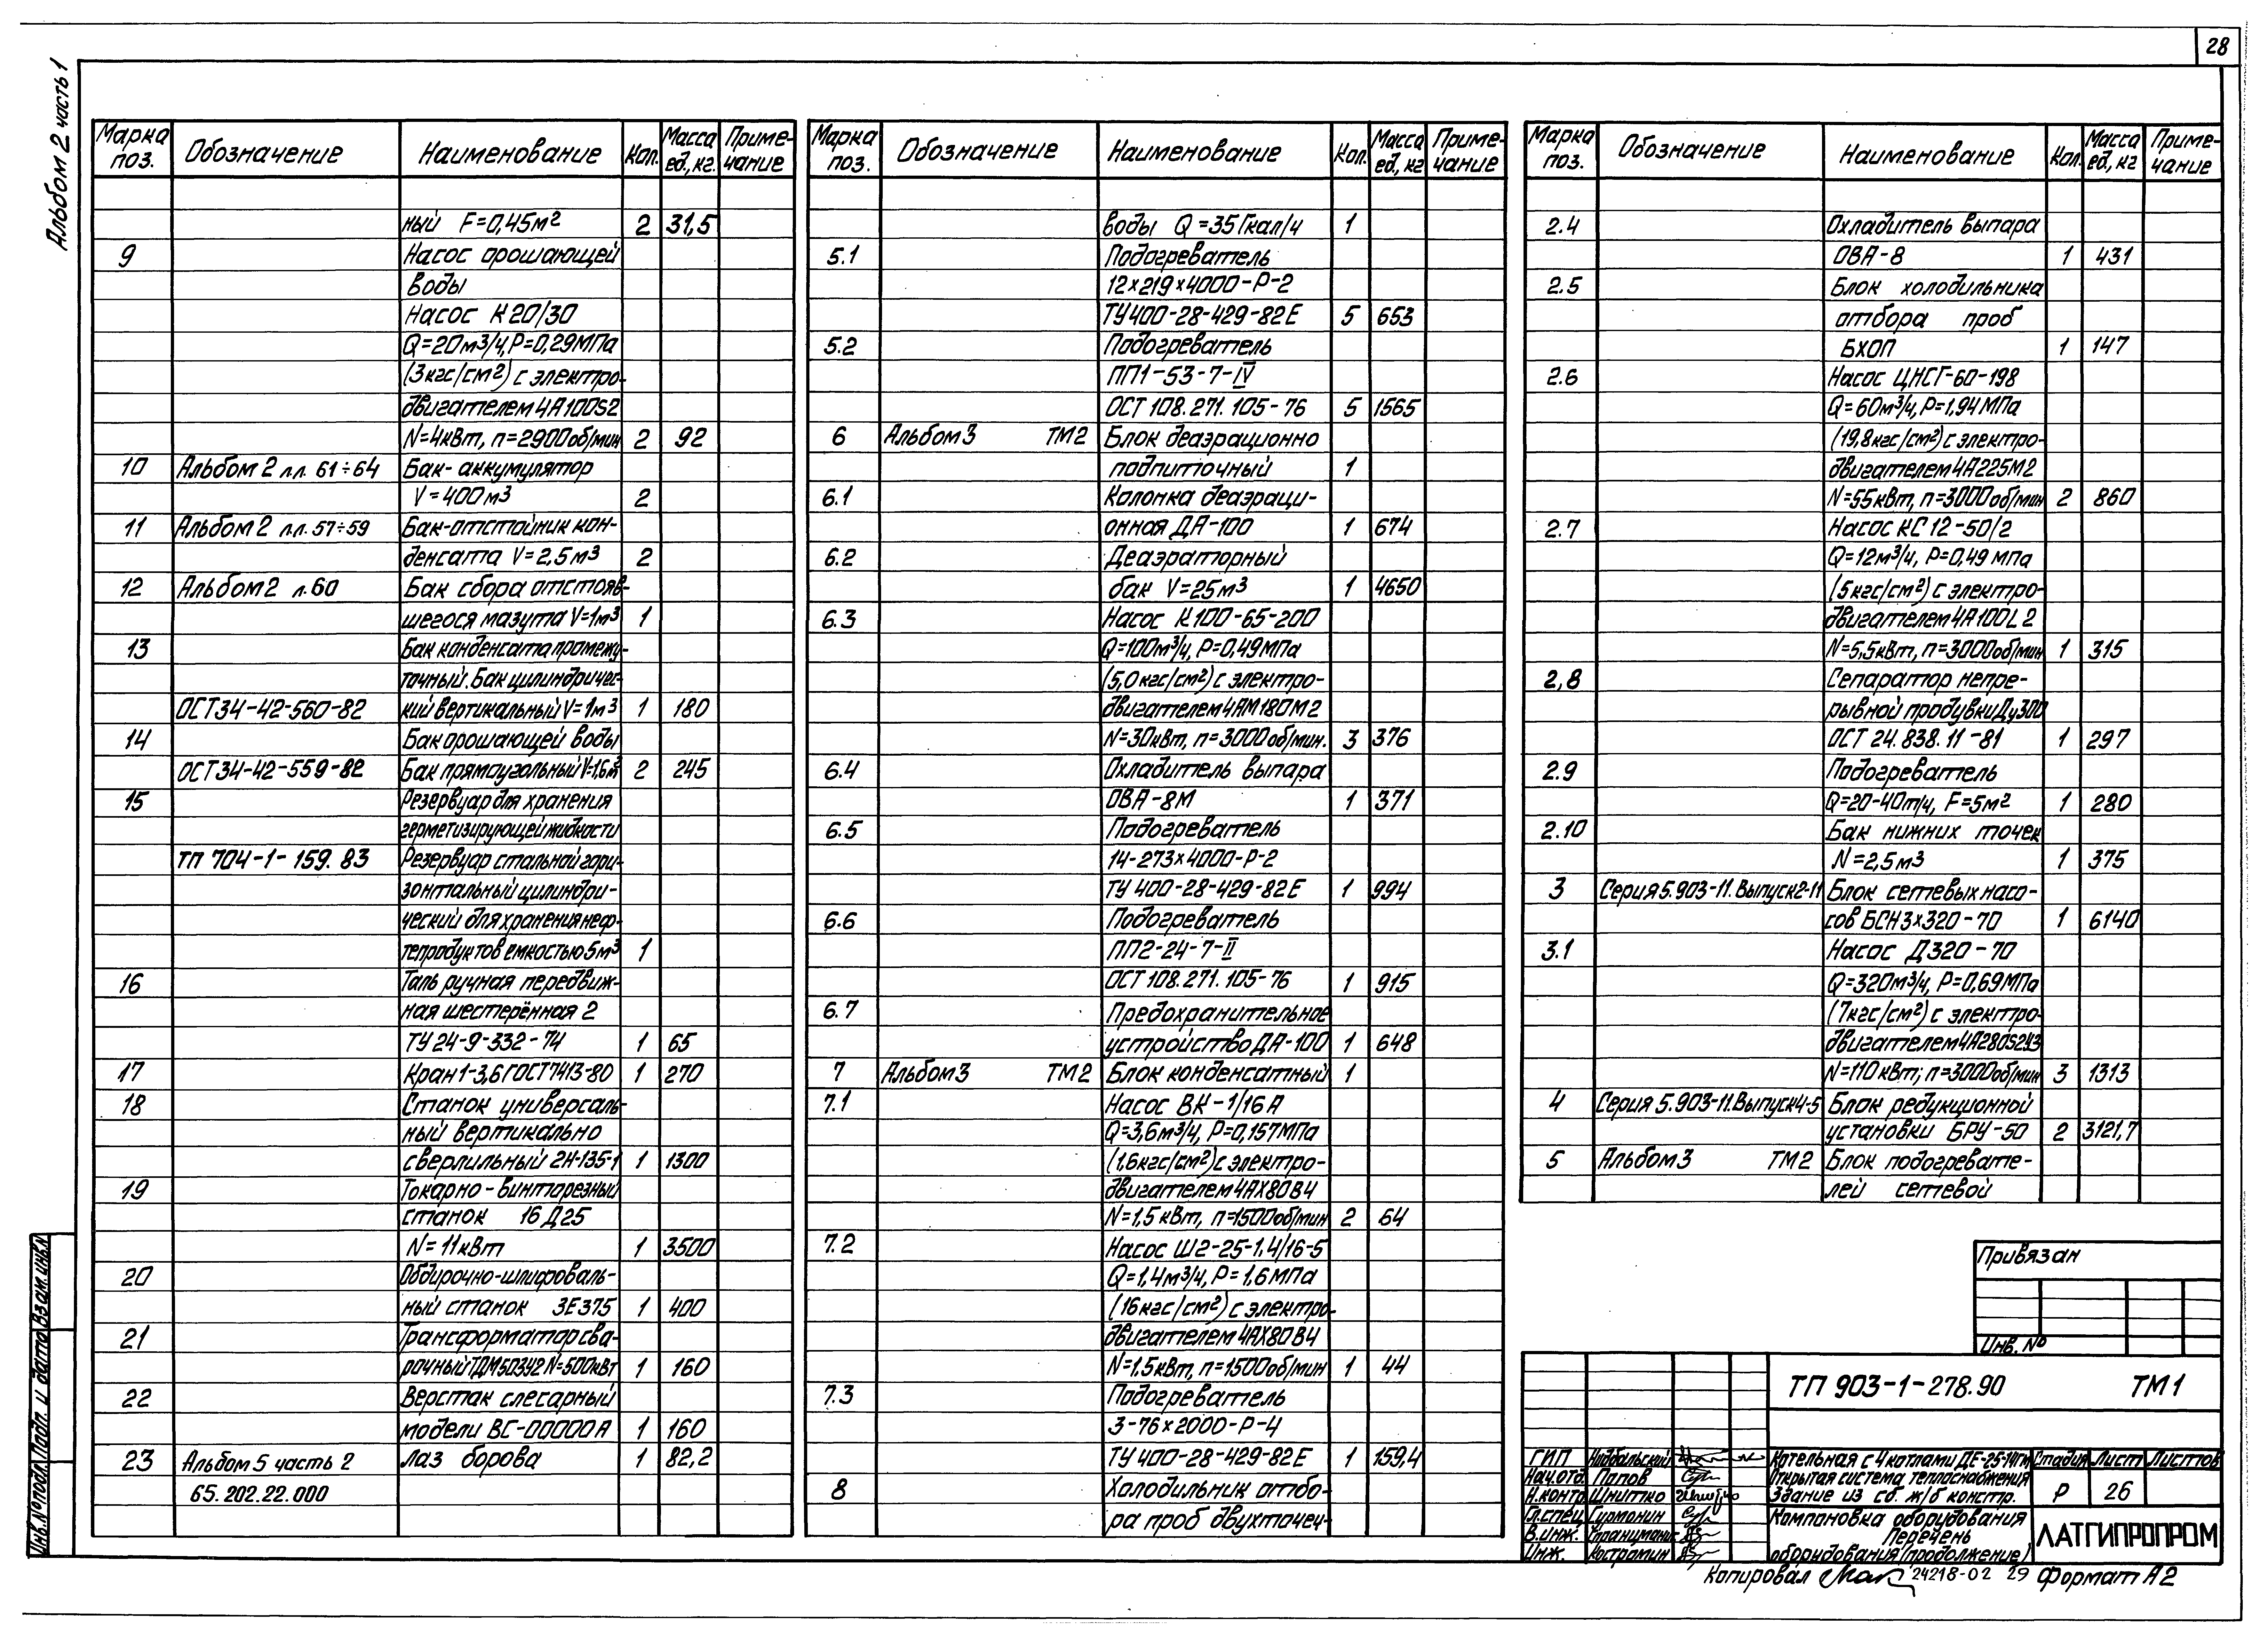 28
Альбом 2 часть 1
Марка поз. Обозначение Наименование Кол. Масса ед., кг. Приме-чание
ный F=0,45м² 2 31,5
9 Насос орошающей
воды
Насос К20/30
Q=20м³/ч, P=0,29МПа
(3кгс/см²) с электро-
двигателем 4А100S2
N=4кВт, n=2900об/мин 2 92
10 Альбом 2 л.л. 61÷64 Бак-аккумулятор
V=400м³ 2
11 Альбом 2 л.л. 57÷59 Бак-отстойник кон-
денсата V=2,5м³ 2
12 Альбом 2 л.60 Бак сбора отстояв-
шегося мазута V=1м³ 1
13 Бак конденсата промежу-
точный. Бак цилиндричес-
ОСТ34-42-560-82 кий вертикальный V=1м³ 1 180
14 Бак орошающей воды
ОСТ34-42-559-82 Бак прямоугольный V=1,6м³ 2 245
15 Резервуар для хранения
герметизирующей жидкости
ТП 704-1-159.83 Резервуар стальной гори-
зонтальный цилиндри-
ческий для хранения неф-
тепродуктов емкостью 5м³ 1
16 Таль ручная передвиж-
ная шестерённая 2
ТУ 24-9-332-74 1 65
17 Кран 1-3,6 ГОСТ 7413-80 1 270
18 Станок универсаль-
ный вертикально
сверлильный 2Н-135-1 1 1300
19 Токарно-винторезный
станок 16Д25
N=11кВт 1 3500
20 Обдирочно-шлифоваль-
ный станок 3Е375 1 400
21 Трансформатор сва-
рочный ТДМ503У2 N=500кВт 1 160
22 Верстак слесарный
модели ВС-00000А 1 160
23 Альбом 5 часть 2 лаз борова 1 82,2
65.202.22.000
Марка поз. Обозначение Наименование Кол. Масса ед., кг Приме-чание
воды Q=35Гкал/ч 1
5.1 Подогреватель
12×219×4000-Р-2
ТУ400-28-429-82Е 5 653
5.2 Подогреватель
ПП1-53-7-IV
ОСТ 108.271.105-76 5 1565
6 Альбом 3 ТМ2 Блок деаэрационно
подпиточный 1
6.1 Колонка деаэраци-
онная ДА-100 1 674
6.2 Деаэраторный
бак V=25м³ 1 4650
6.3 Насос К100-65-200
Q=100м³/ч, P=0,49МПа
(5,0кгс/см²) с электро-
двигателем 4АМ180М2
N=30кВт, n=3000об/мин. 3 376
6.4 Охладитель выпара
ОВА-8М 1 371
6.5 Подогреватель
14-273×4000-Р-2
ТУ 400-28-429-82Е 1 994
6.6 Подогреватель
ПП2-24-7-II
ОСТ 108.271.105-76 1 915
6.7 Предохранительное
устройство ДА-100 1 648
7 Альбом 3 ТМ2 Блок конденсатный 1
7.1 Насос ВК-1/16А
Q=3,6м³/ч, P=0,157МПа
(1,6кгс/см²) с электро-
двигателем 4АХ80В4
N=1,5кВт, n=1500об/мин 2 64
7.2 Насос Ш2-25-1,4/16-5
Q=1,4м³/ч, P=1,6МПа
(16кгс/см²) с электро-
двигателем 4АХ80В4
N=1,5кВт, n=1500об/мин 1 44
7.3 Подогреватель
3-76×2000-Р-4
ТУ 400-28-429-82Е 1 159,4
8 Холодильник отбо-
ра проб двухточеч-
Марка поз. Обозначение Наименование Кол. Масса ед., кг Приме-чание
2.4 Охладитель выпара
ОВА-8 1 431
2.5 Блок холодильника
отбора проб
БХОП 1 147
2.6 Насос ЦНСГ-60-198
Q=60м³/ч, P=1,94МПа
(19,8кгс/см²) с электро-
двигателем 4А225М2
N=55кВт, n=3000об/мин 2 860
2.7 Насос КС12-50/2
Q=12м³/ч, P=0,49МПа
(5кгс/см²) с электро-
двигателем 4А100L2
N=5,5кВт, n=3000об/мин 1 315
2,8 Сепаратор непре-
рывной продувки Ду300
ОСТ 24.838.11-81 1 297
2.9 Подогреватель
Q=20-40т/ч, F=5м² 1 280
2.10 Бак нижних точек
N=2,5м³ 1 375
3 Серия 5.903-11. Выпуск 2-11 Блок сетевых насо-
сов БСН3×320-70 1 6140
3.1 Насос Д320-70
Q=320м³/ч, P=0,69МПа
(7кгс/см²) с электро-
двигателем 4А280S2У3
N=110кВт; n=3000об/мин 3 1313
4 Серия 5.903-11. Выпуск 4-5 Блок редукционной
установки БРУ-50 2 3121,7
5 Альбом 3 ТМ2 Блок подогревате-
лей сетевой
Привязан
Инв. №
ТП 903-1-278.90 ТМ1
ГИП
Нач.отд. Попов
Н.контр Шнитко
Гл.спец. Гуртонин
В.инж.
Инж. Костромин
Котельная с 4 котлами ДЕ-25-14ГМ
Открытая система теплоснабжения
Здание из сб. ж/б констр.
Стадия Лист Листов
Р 26
Компоновка оборудования
Перечень
оборудования (продолжение)
ЛАТГИПРОПРОМ
Копировал 24218-02 29 Формат А2
Инв.№подл. Подп. и дата Взам.инв.N